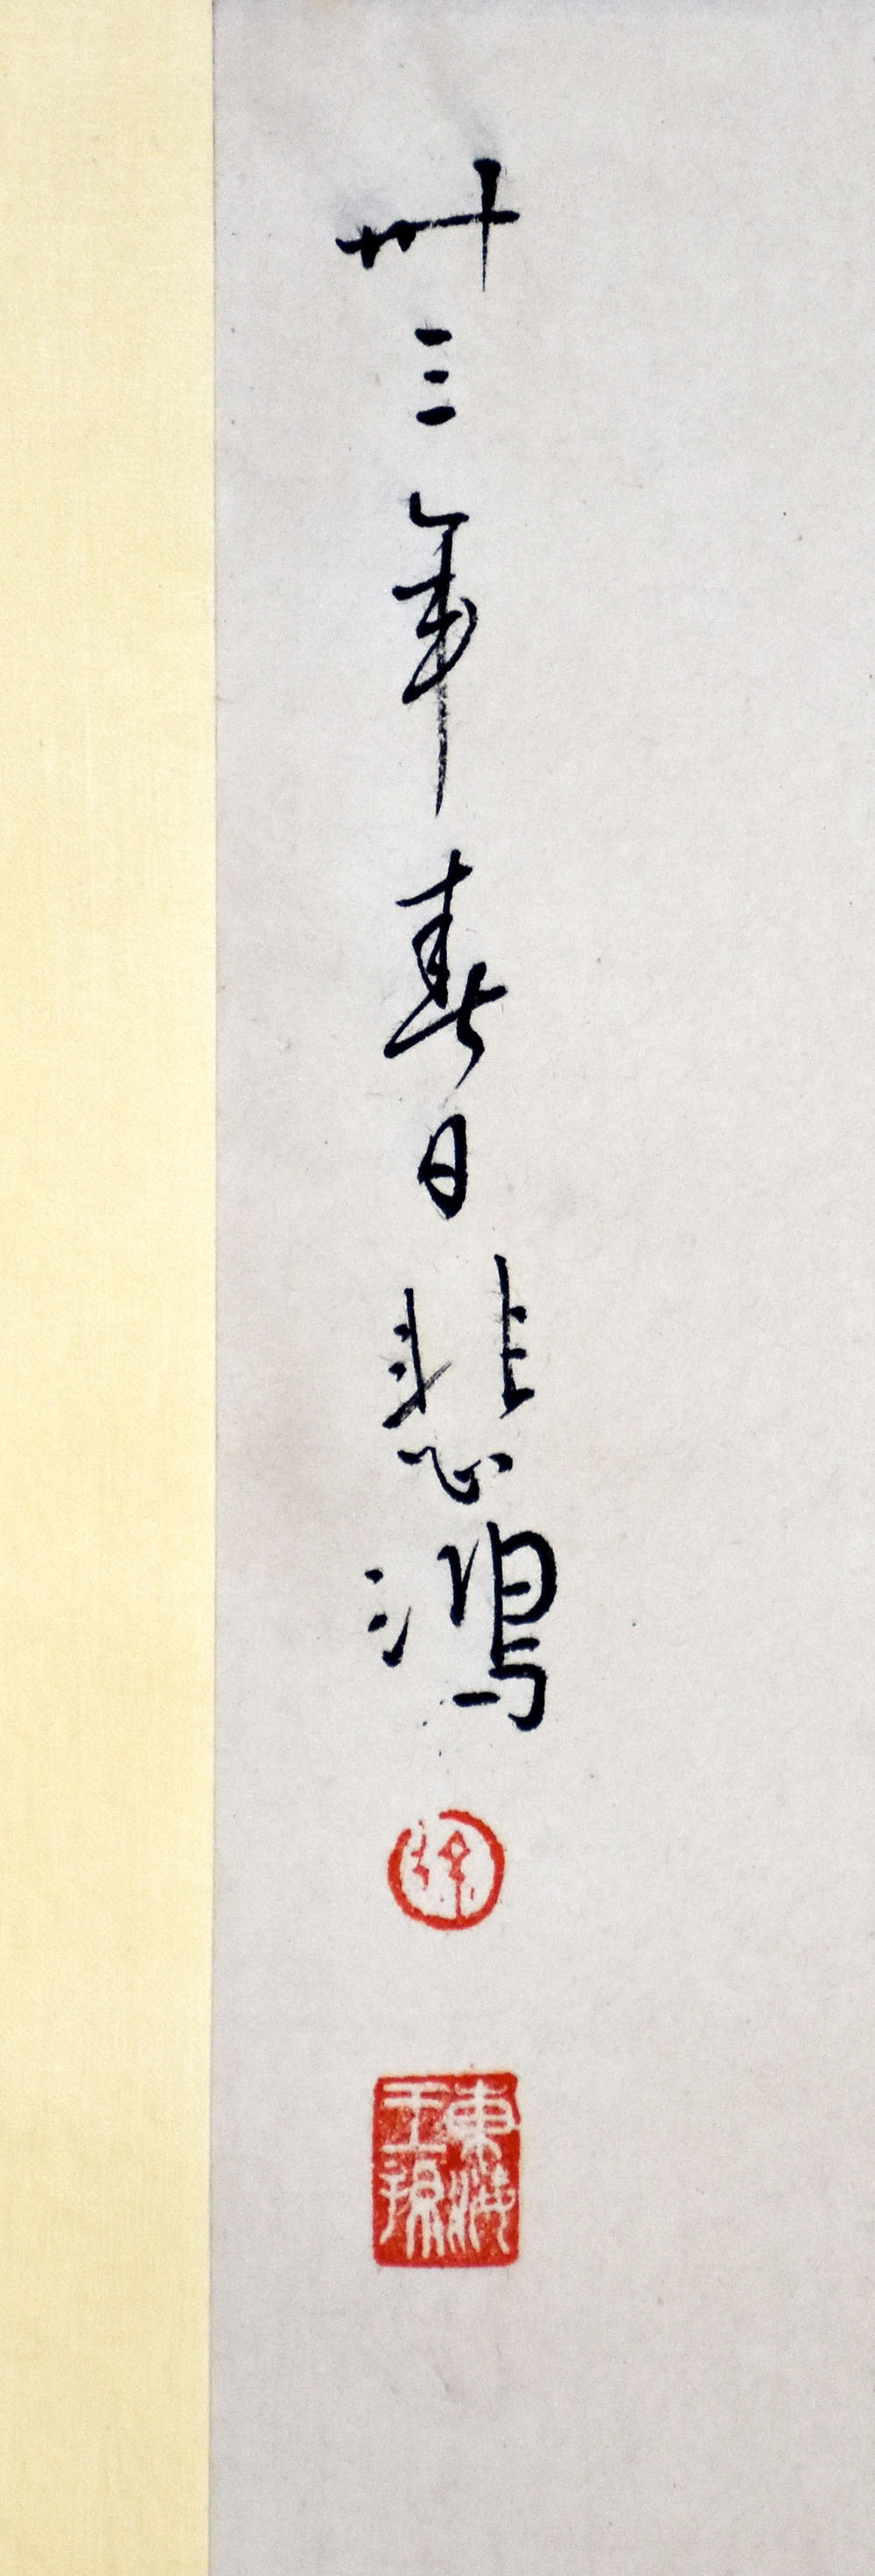 卅三年春日悲鴻
徐
東海王孫